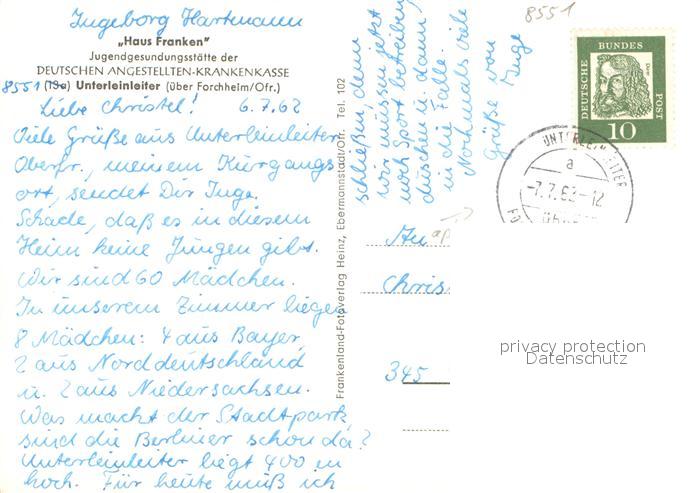 Ingeborg Hartmann
8551
„Haus Franken"
Jugendgesundungsstätte der
DEUTSCHEN ANGESTELLTEN-KRANKENKASSE
8551 (13a) Unterleinleiter (über Forchheim/Ofr.)
Liebe Christel! 6.7.62
Viele Grüße aus Unterleinleiter
Oberfr., meinem Kurgangs
ort, sendet Dir Inge.
Schade, daß es in diesem
Heim keine Jungen gibt.
Wir sind 60 Mädchen.
In unserem Zimmer liegen
8 Mädchen: 4 aus Bayer,
2 aus Norddeutschland
u. 2 aus Niedersachsen.
Was macht der Stadtpark
sind die Berliner schon da?
Unterleinleiter liegt 400 m
hoch. Für heute muß ich
schließen, denn
wir müssen jetzt
noch Sport betreiben,
duschen u. dann
in die Falle.
Nochmals viele
Grüße von
Inge
Frankenland-Fotoverlag Heinz, Ebermannstadt/Ofr. Tel. 102
DEUTSCHE BUNDES POST
Dürer
10
UNTERLEINLEITER
a
-7.7.62-12
An
Chris
345
privacy protection
Datenschutz